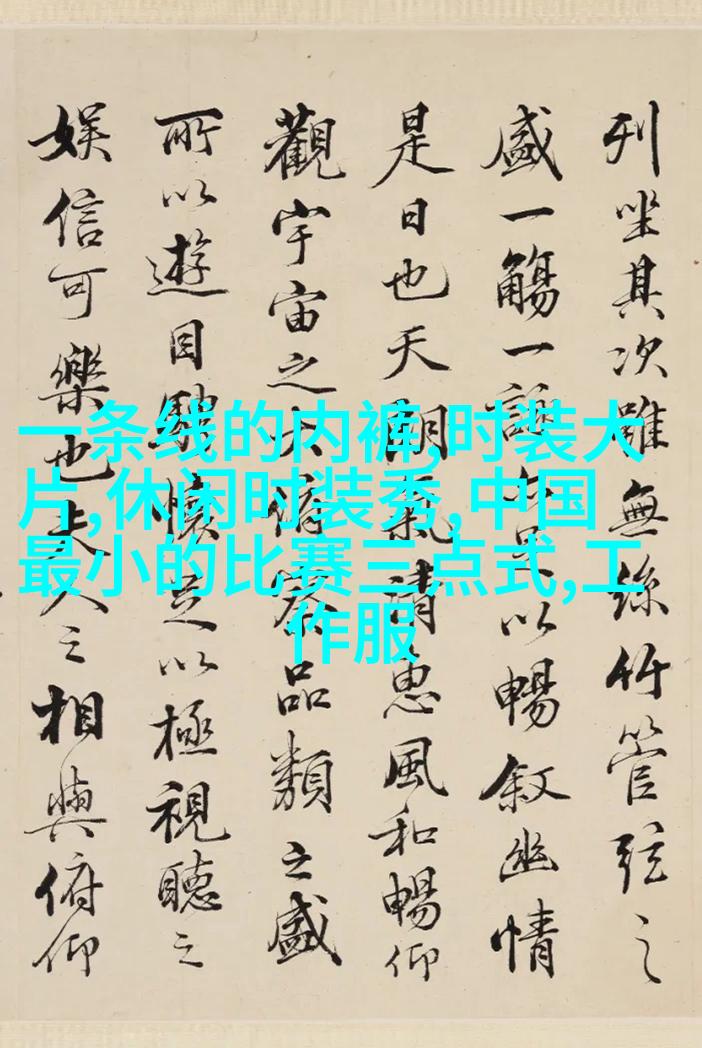 列坐其次雖無絲竹管弦之
盛一觴一詠亦足以暢叙幽情
是日也天朗氣清惠風和暢仰
觀宇宙之大俯察品類之盛
所以遊目騁懷足以極視聽之
娛信可樂也夫人之相與俯仰
一条线的内裤,时装大
片,休闲时装秀,中国
最小的比赛三点式,工
作服